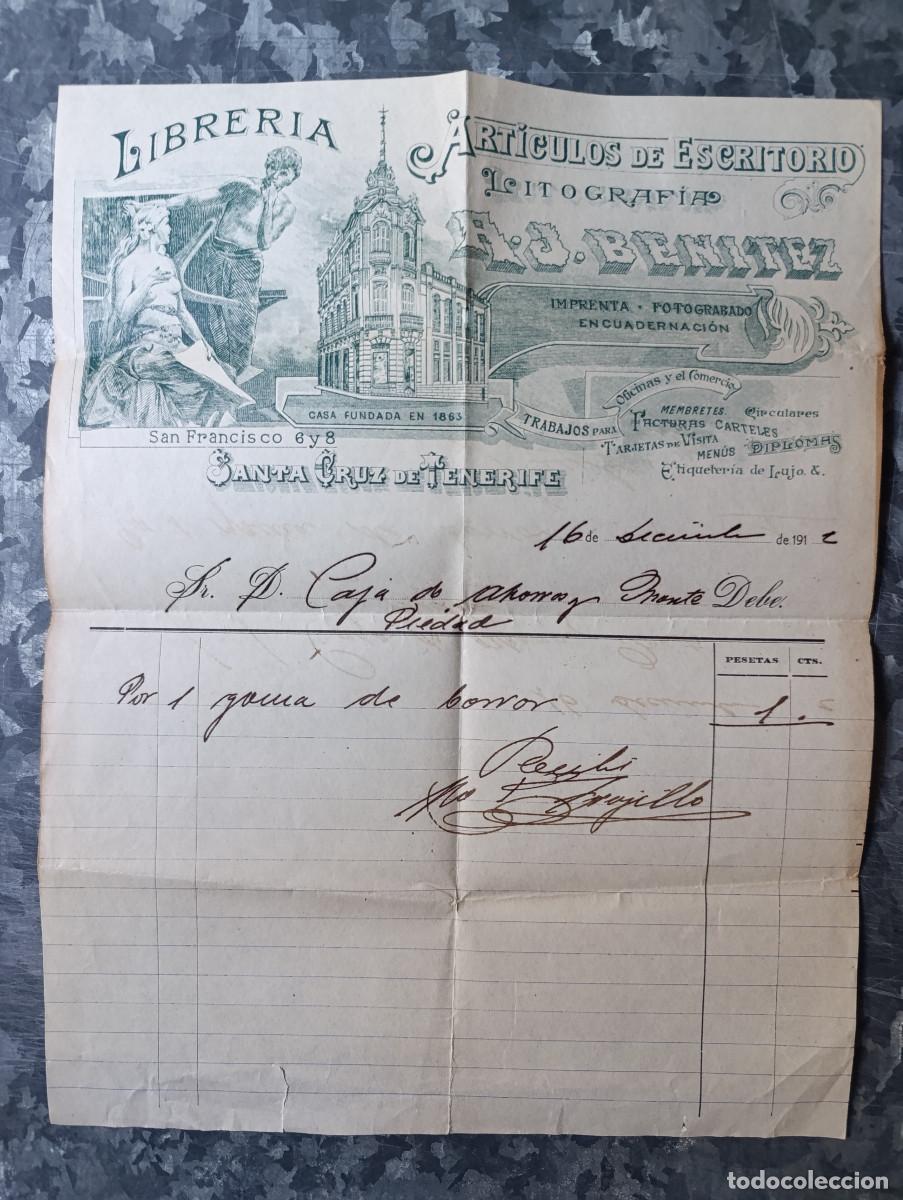 LIBRERIA
ARTÍCULOS DE ESCRITORIO
LITOGRAFÍA
A.J. BENITEZ
IMPRENTA · FOTOGRABADO
ENCUADERNACIÓN
CASA FUNDADA EN 1863
TRABAJOS PARA
Oficinas y el Comercio
MEMBRETES. Circulares
FACTURAS CARTELES
TARJETAS DE VISITA MENÚS DIPLOMAS
Etiquetería de Lujo. &.
San Francisco 6 y 8
SANTA CRUZ DE TENERIFE
16 de Diciembre de 1912
Sr. D. Caja de Ahorros y Monte Debe.
Piedad
PESETAS CTS.
Por 1 goma de borrar 1.
Recibi
Trujillo
todocoleccion